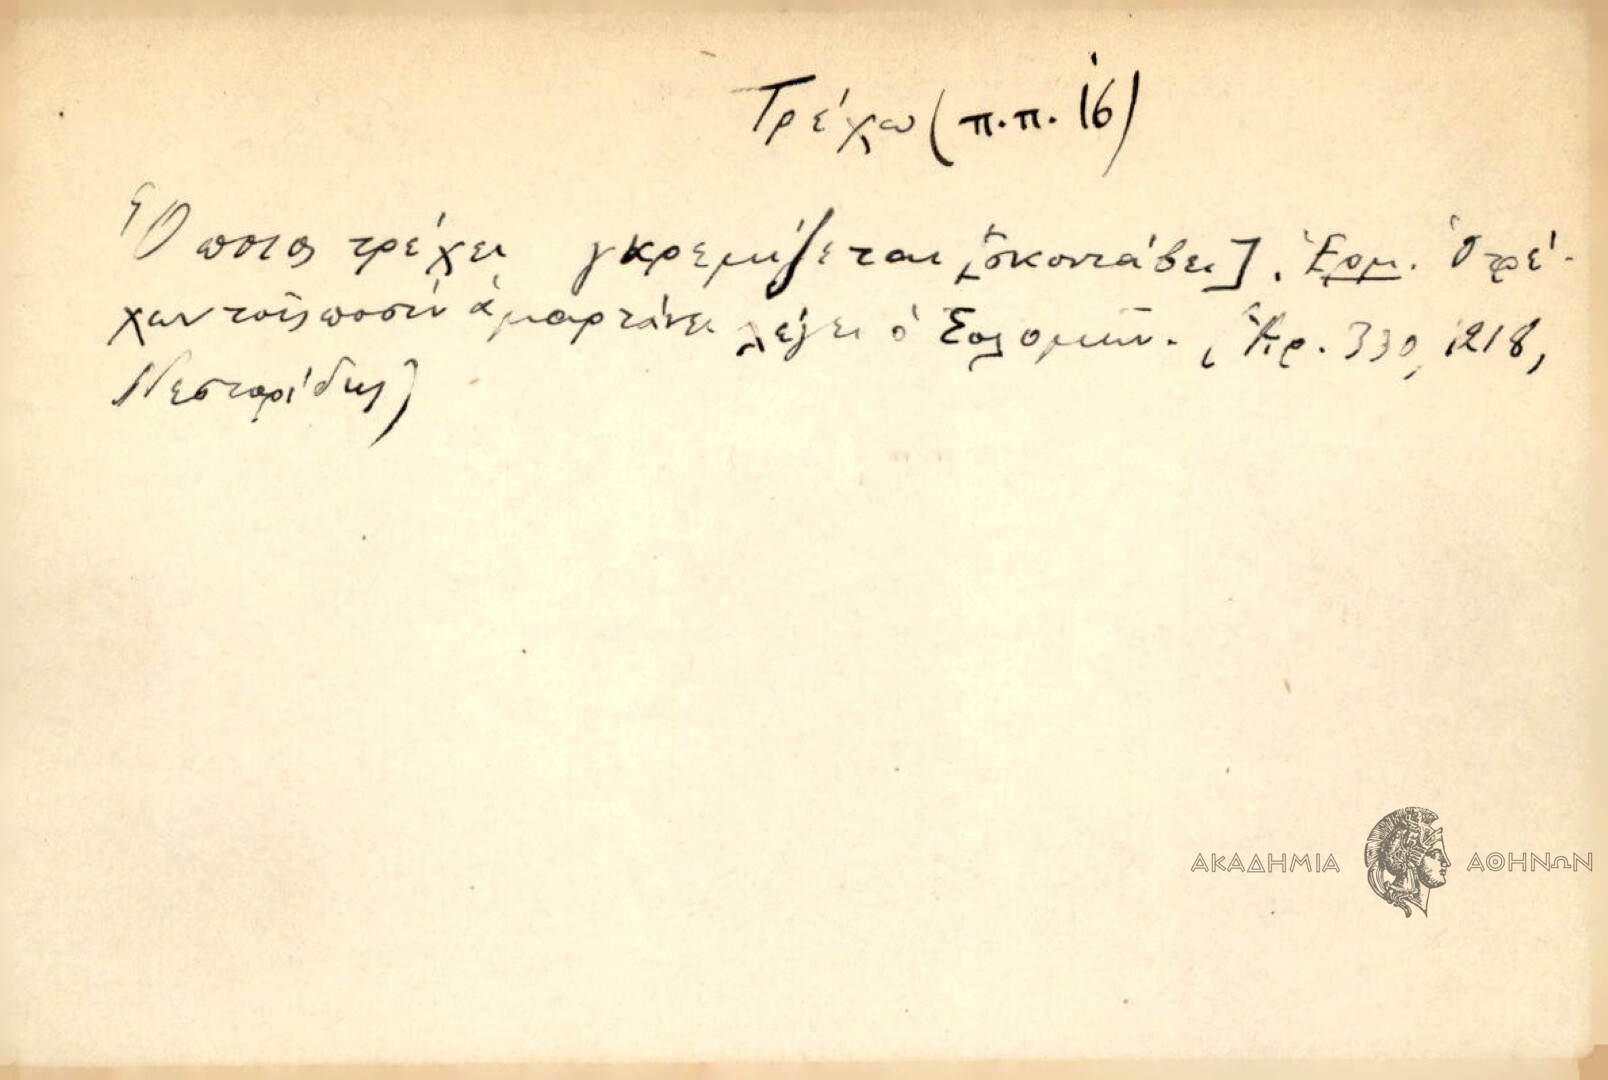 Τρέχω (π.π. 16)
Ὅποιος τρέχει γκρεμίζεται [σκοντάβει]. Ἑρμ. Ὁ τρέ-
χων τοῖς ποσὶν ἁμαρτάνει λέγει ὁ Σολομῶν. (Χρ. 330, 218,
Νεστορίδης)
ΑΚΑΔΗΜΙΑ ΑΘΗΝΩΝ